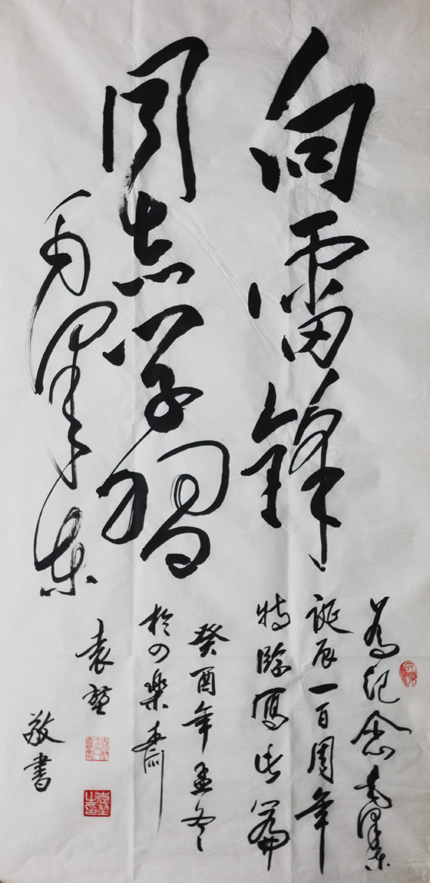 向雷锋
同志学习
毛泽东
为纪念毛泽东
诞辰一百周年
特临写此篇
癸酉年孟冬
于四乐斋
袁
敬书